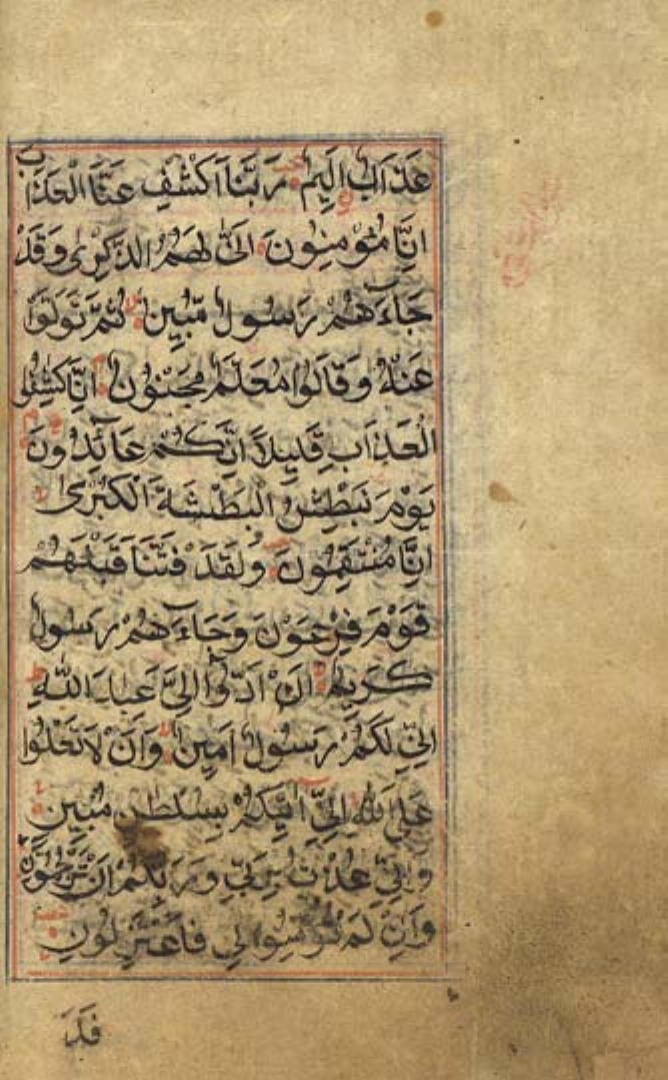 عَذَابٌ اَلِيمٌ رَبَّنَا اكْشِفْ عَنَّا الْعَذَابَ
اِنَّا مُؤْمِنُونَ اَنّٰى لَهُمُ الذِّكْرٰى وَقَدْ
جَاءَهُمْ رَسُولٌ مُّبِينٌ ثُمَّ تَوَلَّوْا
عَنْهُ وَقَالُوا مُعَلَّمٌ مَجْنُونٌ اِنَّا كَاشِفُوا
الْعَذَابِ قَلِيلًا اِنَّكُمْ عَائِدُونَ
يَوْمَ نَبْطِشُ الْبَطْشَةَ الْكُبْرٰى
اِنَّا مُنْتَقِمُونَ وَلَقَدْ فَتَنَّا قَبْلَهُمْ
قَوْمَ فِرْعَوْنَ وَجَاءَهُمْ رَسُولٌ
كَرِيمٌ اَنْ اَدُّوا اِلَيَّ عِبَادَ اللّٰهِ
اِنِّي لَكُمْ رَسُولٌ اَمِينٌ وَاَنْ لَا تَعْلُوا
عَلَى اللّٰهِ اِنِّي اٰتِيكُمْ بِسُلْطٰنٍ مُبِينٍ
وَاِنِّي عُذْتُ بِرَبِّي وَرَبِّكُمْ اَنْ تَرْجُمُونِ
وَاِنْ لَمْ تُؤْمِنُوا لِي فَاعْتَزِلُونِ
فَدَ